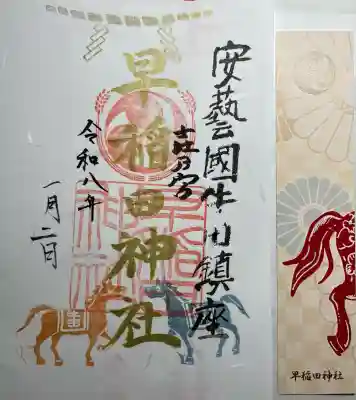 安藝國牛田鎮座
早稲田神社
令和八年
一月二日
早稲田神社